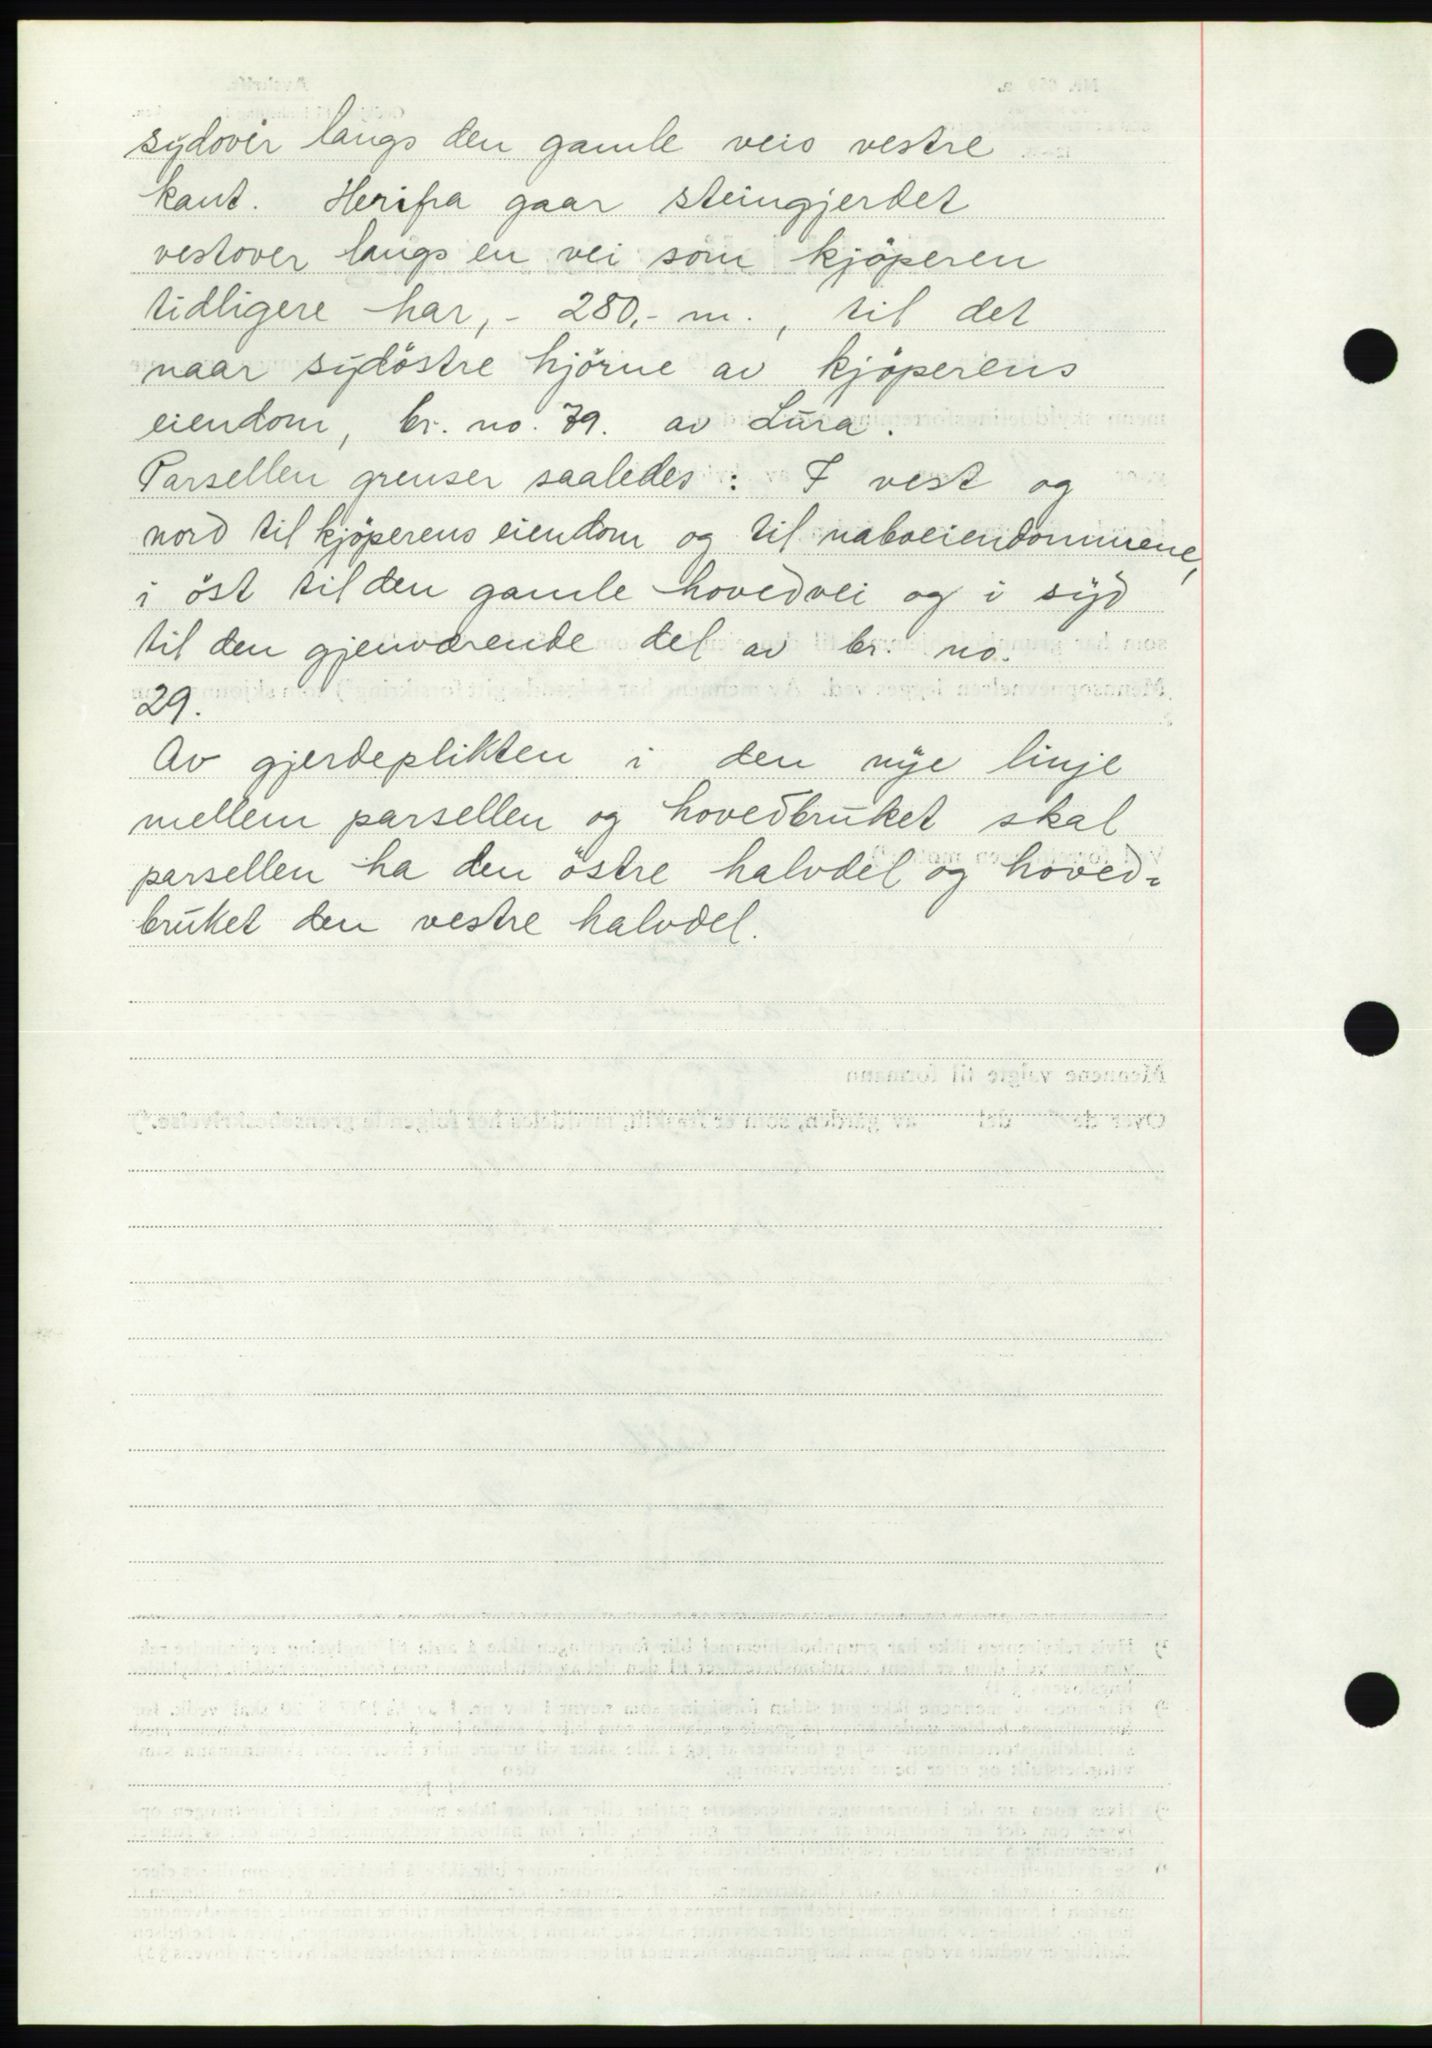 sydover langs den gamle veis vestre
kant. Herifra gaar steingjerdet
vestover langs en vei som kjöperen
tidligere har, - 280,- m., til det
naar sydöstre hjörne av kjöperens
eiendom, br. no. 79. av Lura.
Parsellen grenser saaledes: I vest og
nord til kjöperens eiendom og til naboeiendommene,
i öst til den gamle hovedvei og i syd
til den gjenværende del av br. no.
29.
Av gjerdeplikten i den nye linje
mellem parsellen og hovedbruket skal
parsellen ha den östre halvdel og hoved=
bruket den vestre halvdel.